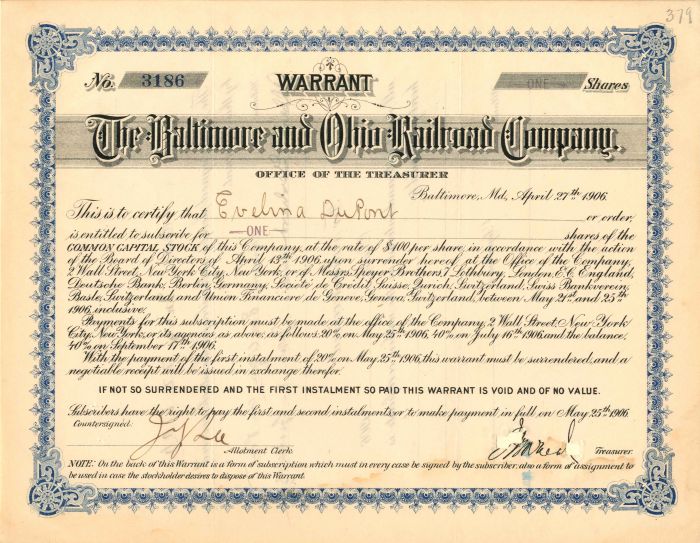 379
No. 3186 WARRANT ONE Shares
The Baltimore and Ohio Railroad Company.
OFFICE OF THE TREASURER
Baltimore, Md., April 27th 1906.
This is to certify that Evelina DuPont or order,
is entitled to subscribe for ONE shares of the
COMMON CAPITAL STOCK of this Company, at the rate of $100 per share, in accordance with the action
of the Board of Directors of April 13th 1906, upon surrender hereof at the Office of the Company,
2 Wall Street, New York City, New York, or of Messrs Speyer Brothers, 7 Lothbury, London, E.C. England,
Deutsche Bank, Berlin, Germany, Societe de Credit, Suisse, Zurich, Switzerland, Swiss Bankverein,
Basle, Switzerland, and Union Financiere de Geneve, Geneva, Switzerland, between May 21st and 25th
1906, inclusive.
Payments for this subscription must be made at the office of the Company, 2 Wall Street, New York
City, New York, or its agencies as above, as follows, 20% on May 25th 1906, 40% on July 16th 1906, and the balance,
40% on September 17th 1906.
With the payment of the first instalment of 20% on May 25th 1906, this warrant must be surrendered, and a
negotiable receipt will be issued in exchange therefor.
IF NOT SO SURRENDERED AND THE FIRST INSTALMENT SO PAID THIS WARRANT IS VOID AND OF NO VALUE.
Subscribers have the right to pay the first and second instalments, or to make payment in full on May 25th 1906.
Countersigned.
Lee
Allotment Clerk. Treasurer.
NOTE: On the back of this Warrant is a form of subscription which must in every case be signed by the subscriber, also a form of assignment to
be used in case the stockholder desires to dispose of this Warrant.